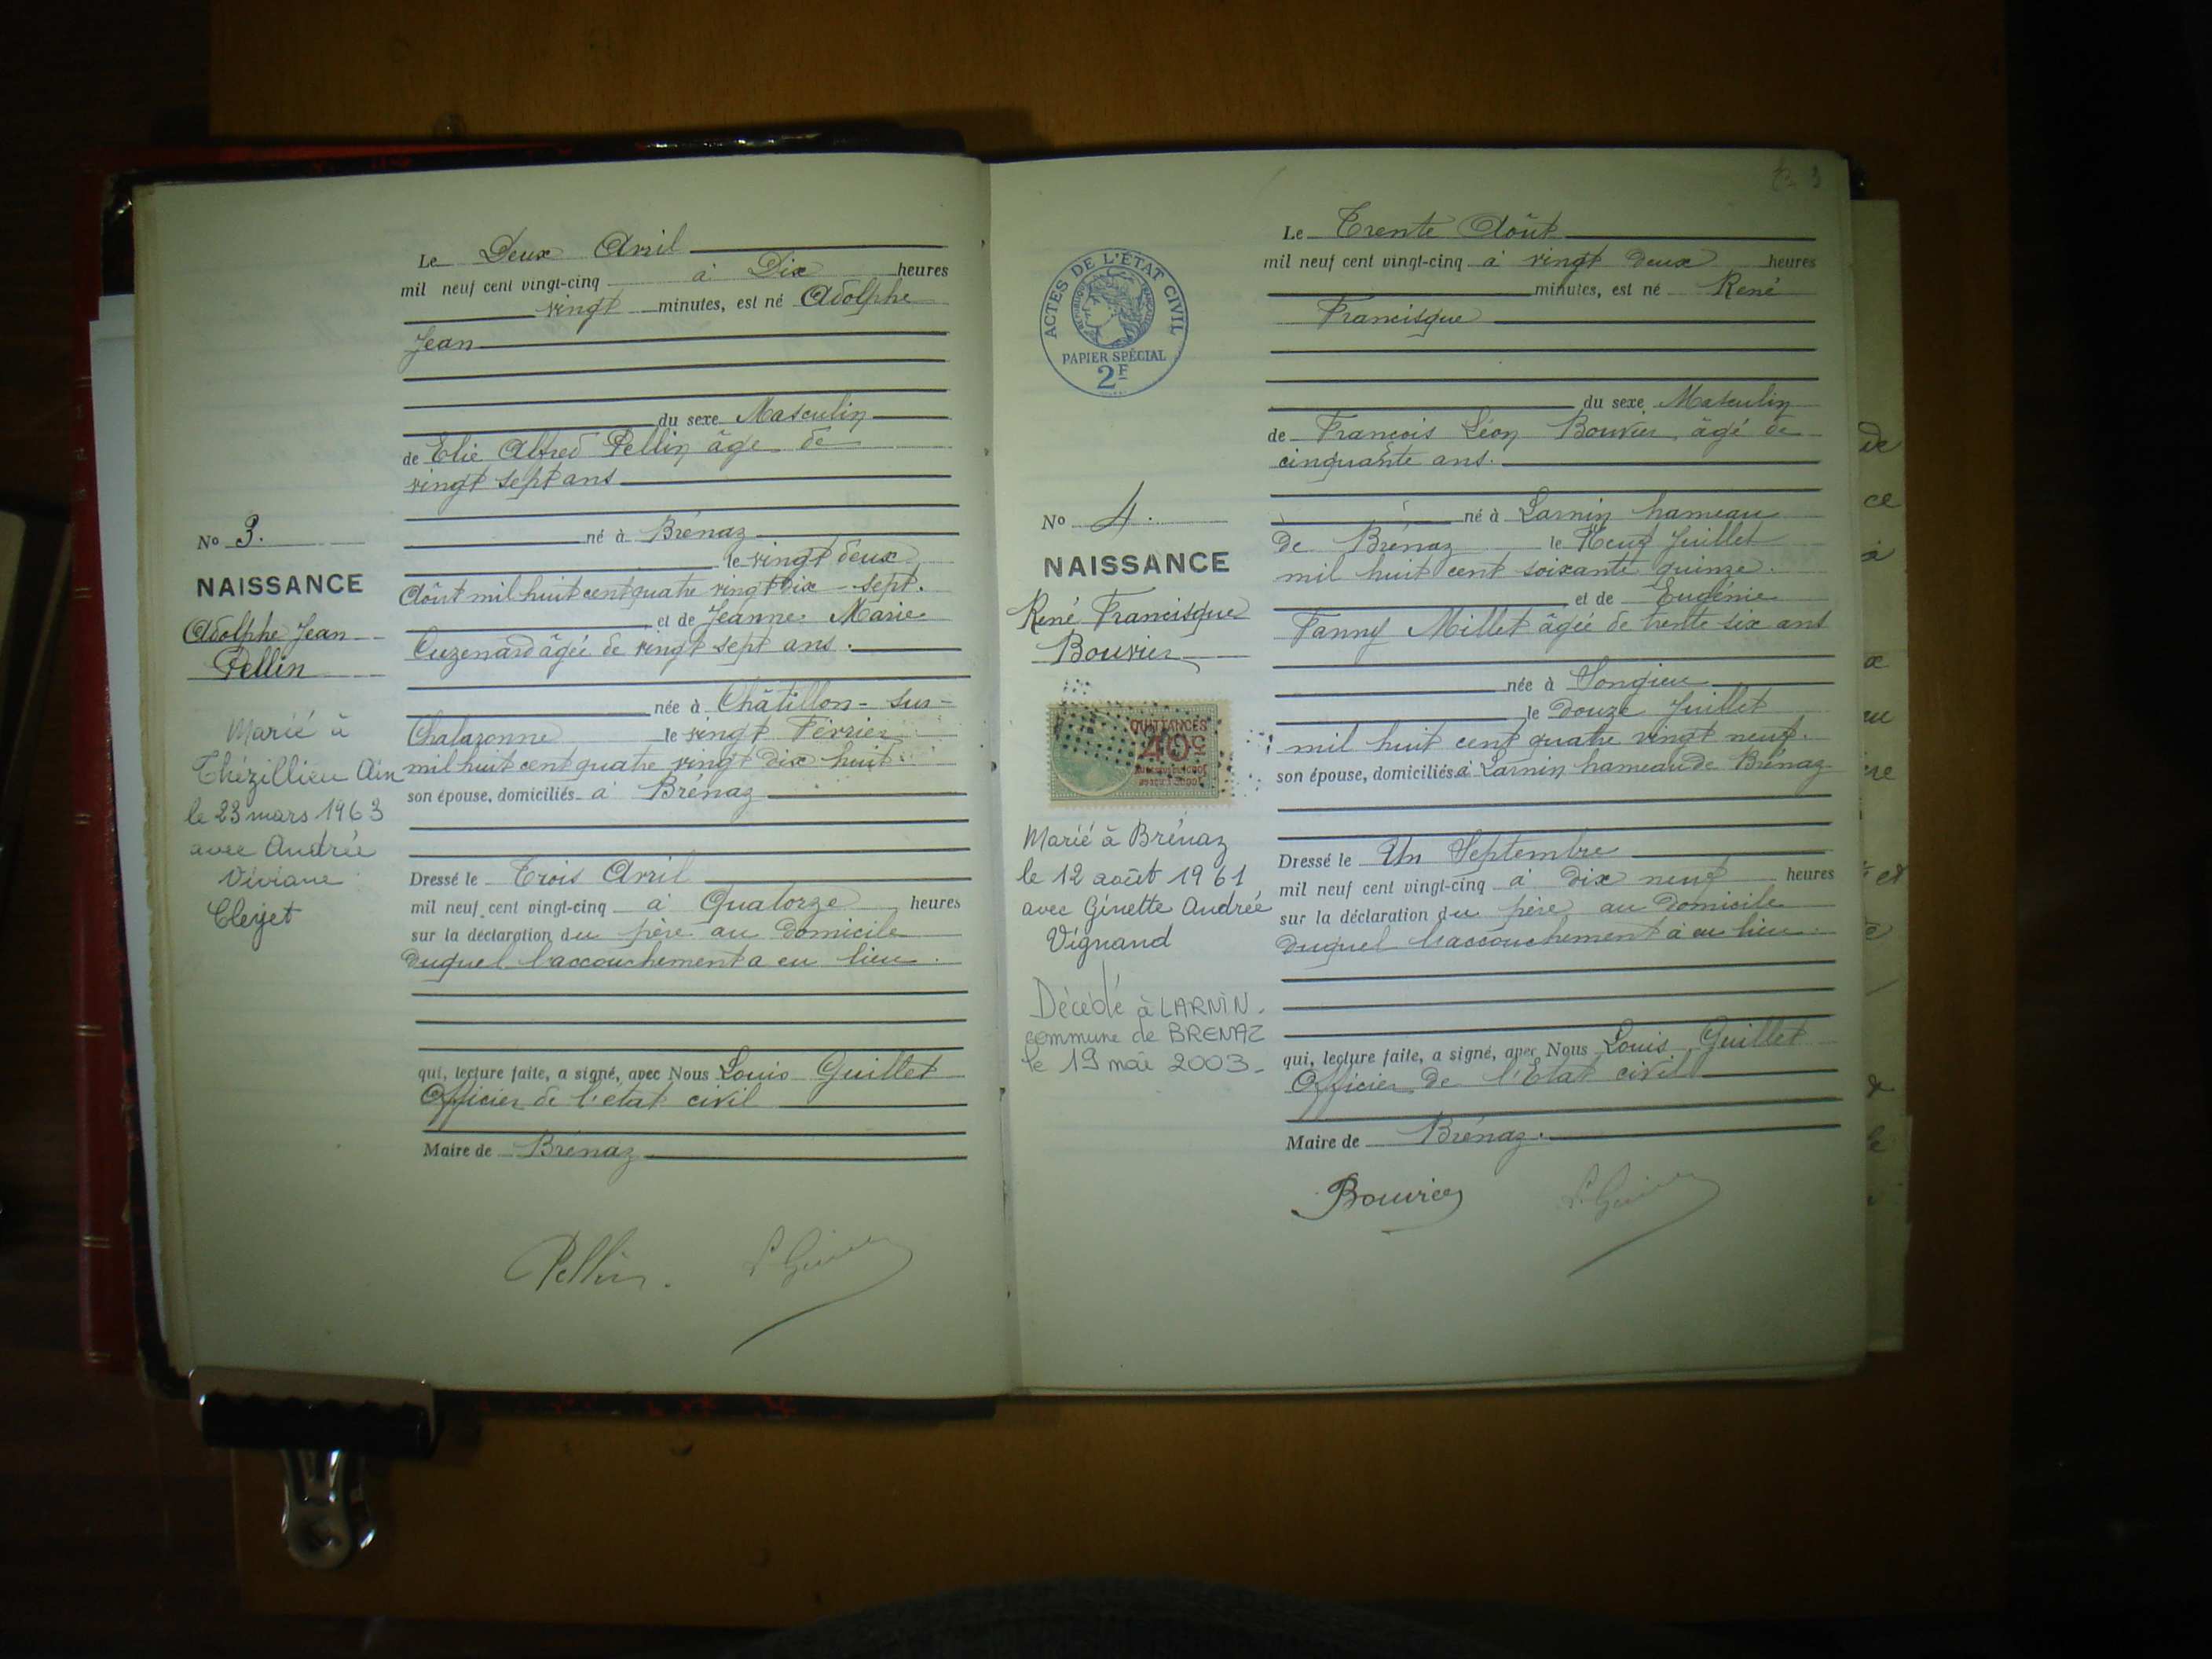 Le Deux Avril
mil neuf cent vingt-cinq à Dix heures
vingt minutes, est né Adolphe
Jean
du sexe Masculin
de Elie Alfred Pellin âgé de
vingt sept ans
né à Brénaz
le vingt deux
Août mil huit cent quatre vingt dix-sept.
et de Jeanne Marie
Cuzenard âgée de vingt sept ans.
née à Châtillon-sur-
Chalaronne le vingt Février
mil huit cent quatre vingt dix huit.
son épouse, domiciliés à Brénaz
Dressé le Trois Avril
mil neuf cent vingt-cinq à Quatorze heures
sur la déclaration du père au domicile
duquel l'accouchement a eu lieu.
qui, lecture faite, a signé, avec Nous Louis Guillet
Officier de l'etat civil
Maire de Brénaz
Pellin.
No 3.
NAISSANCE
Adolphe Jean
Pellin
Marié à
Thézillieu Ain
le 23 mars 1963
avec Andrée
Viviane
Cleyet
Le Trente Août
mil neuf cent vingt-cinq à vingt deux heures
minutes, est né René
Francisque
du sexe Masculin
de François Léon Bouvier âgé de
cinquante ans.
né à Larnin hameau
de Brénaz le Neuf Juillet
mil huit cent soixante quinze.
et de Eugénie
Fanny Millet âgée de trente six ans
née à Songieu
le douze Juillet
mil huit cent quatre vingt neuf.
son épouse, domiciliés à Larnin hameau de Brénaz
Dressé le Un Septembre
mil neuf cent vingt-cinq à dix neuf heures
sur la déclaration du père au domicile
duquel l'accouchement a eu lieu.
qui, lecture faite, a signé, avec Nous Louis Guillet
Officier de l'Etat civil
Maire de Brénaz.
Bouvier
ACTES DE L'ÉTAT CIVIL
PAPIER SPÉCIAL
2F
No 4.
NAISSANCE
René Francisque
Bouvier
QUITTANCES
40c
Marié à Brénaz
le 12 août 1961
avec Ginette Andrée
Vignand
Décédé à LARNIN.
commune de BRENAZ
le 19 mai 2003.